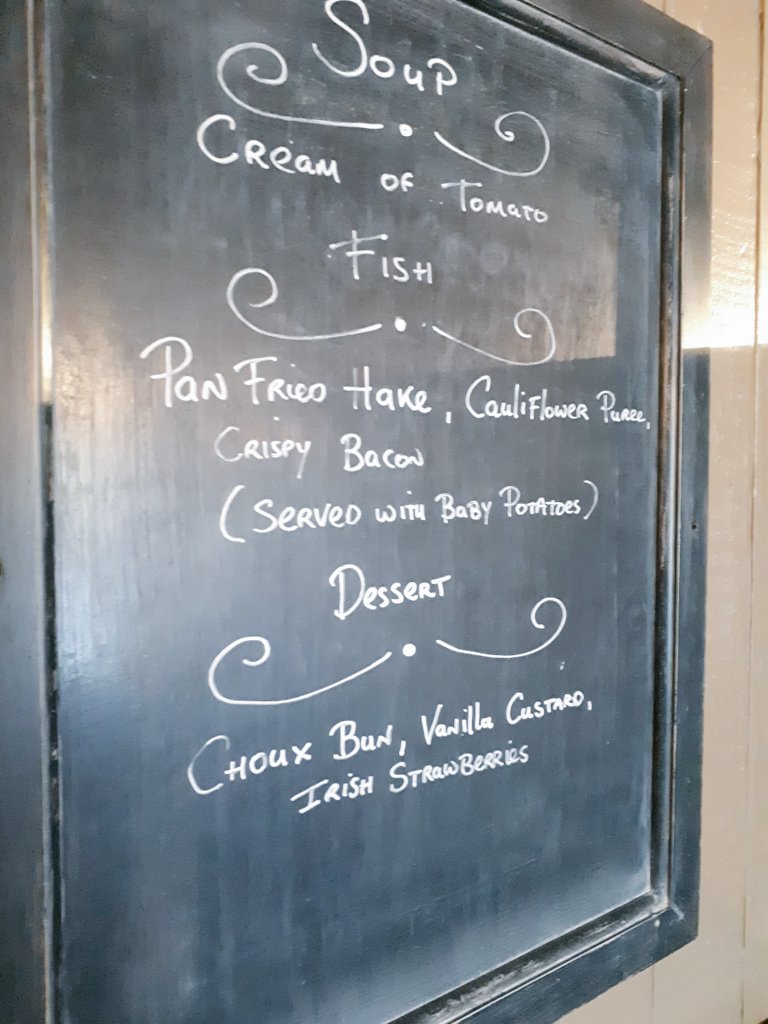 Soup
Cream of Tomato
Fish
Pan Fried Hake, Cauliflower Puree,
Crispy Bacon
(Served with Baby Potatoes)
Dessert
Choux Bun, Vanilla Custard,
Irish Strawberries